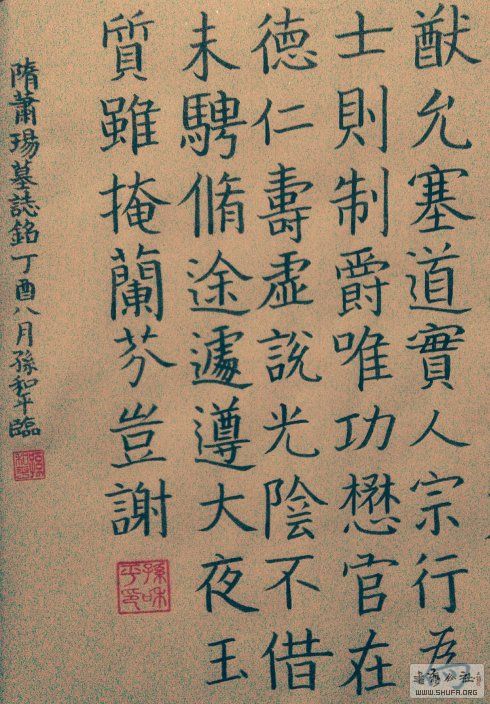 猷允塞道實人宗行為
士則制爵唯功懋官在
德仁壽虛說光陰不借
未騁脩途遽遵大夜玉
質雖掩蘭芬豈謝
隋蕭瑒墓誌銘丁酉八月孫和平臨
孫和平印
WWW.SHUFA.ORG